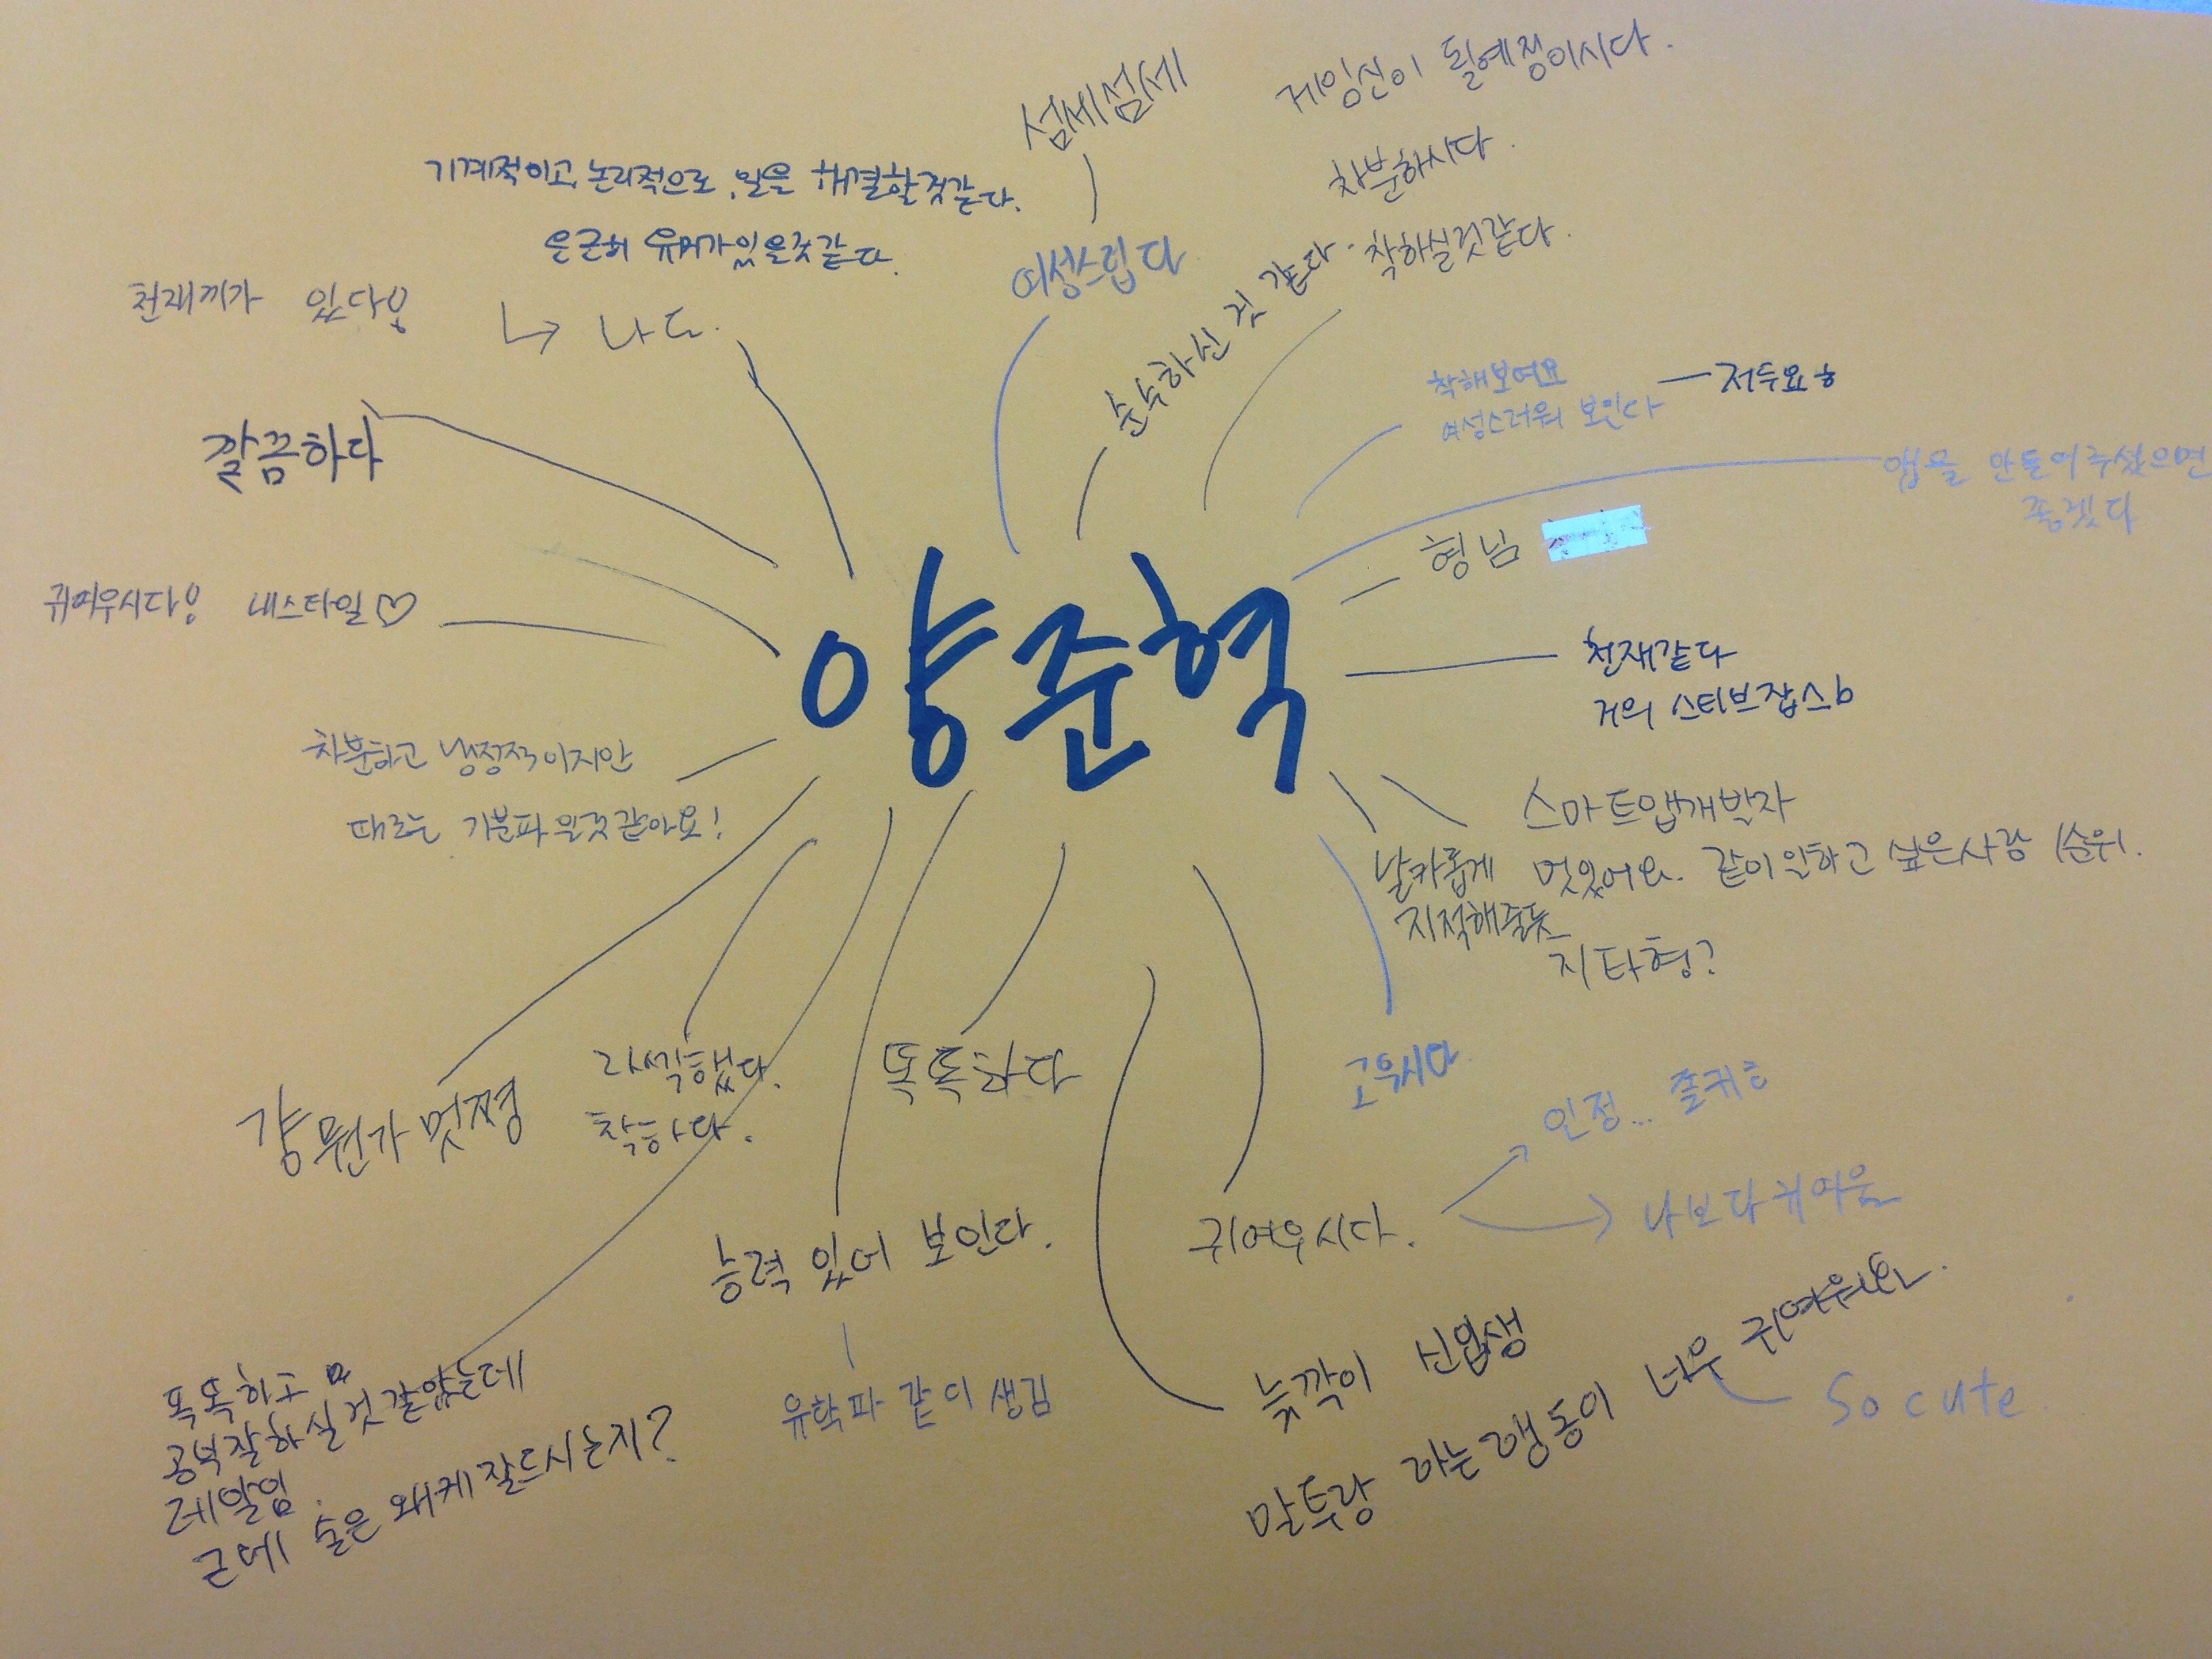 섬세섬세
게임신이 될예정이시다.
차분하시다.
착하실것같다.
기계적이고, 논리적으로, 일을 해결할것같다.
은근히 유머가있을것같다.
여성스럽다
순수하신 것 같다.
천재끼가 있다!
나도.
착해보여요
여성스러워 보인다
저두요ㅎ
깔끔하다
앱을 만들어주셨으면
좋겠다
형님
귀여우시다! 내스타일♡
양준혁
천재같다
거의 스티브잡스b
차분하고 냉정적이지만
때로는 기분파일것같아요!
스마트앱개발자
멋있어요. 같이일하고 싶은사람 1순위.
날카롭게
지적해줄듯
지타형?
걍 뭔가 멋쪙
라식했다.
착하다.
똑똑하다
고우시다
인정... 졸귀ㅎ
나보다 귀여움
귀여우시다.
능력 있어 보인다.
유학파 같이 생김
똑똑하고
공부잘하실것 같았는데
레알임.
근데 술은 왜케잘드시는지?
늙깍이 신입생
말투랑 하는행동이 너무 귀여워요.
So cute